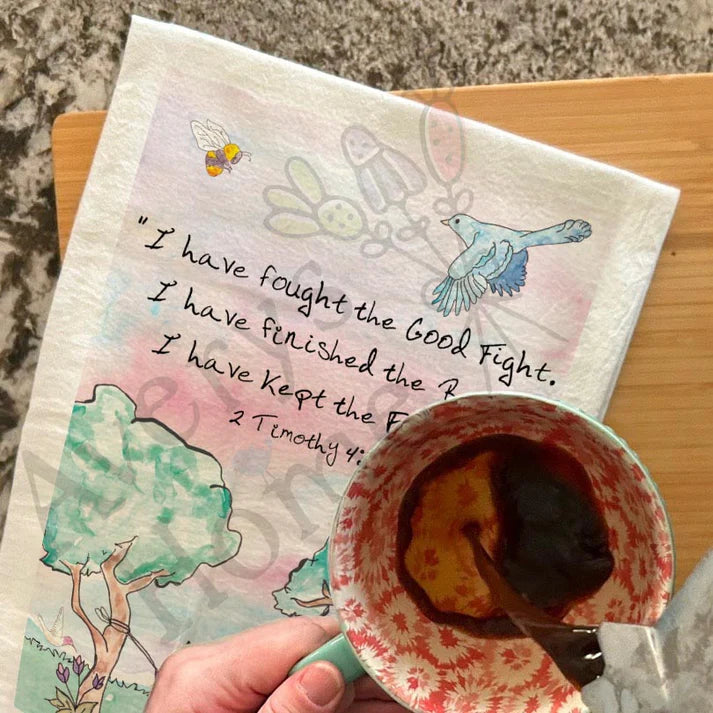 "I have fought the Good Fight.
I have finished the
I have Kept the
2 Timothy 4:
Averys
Home